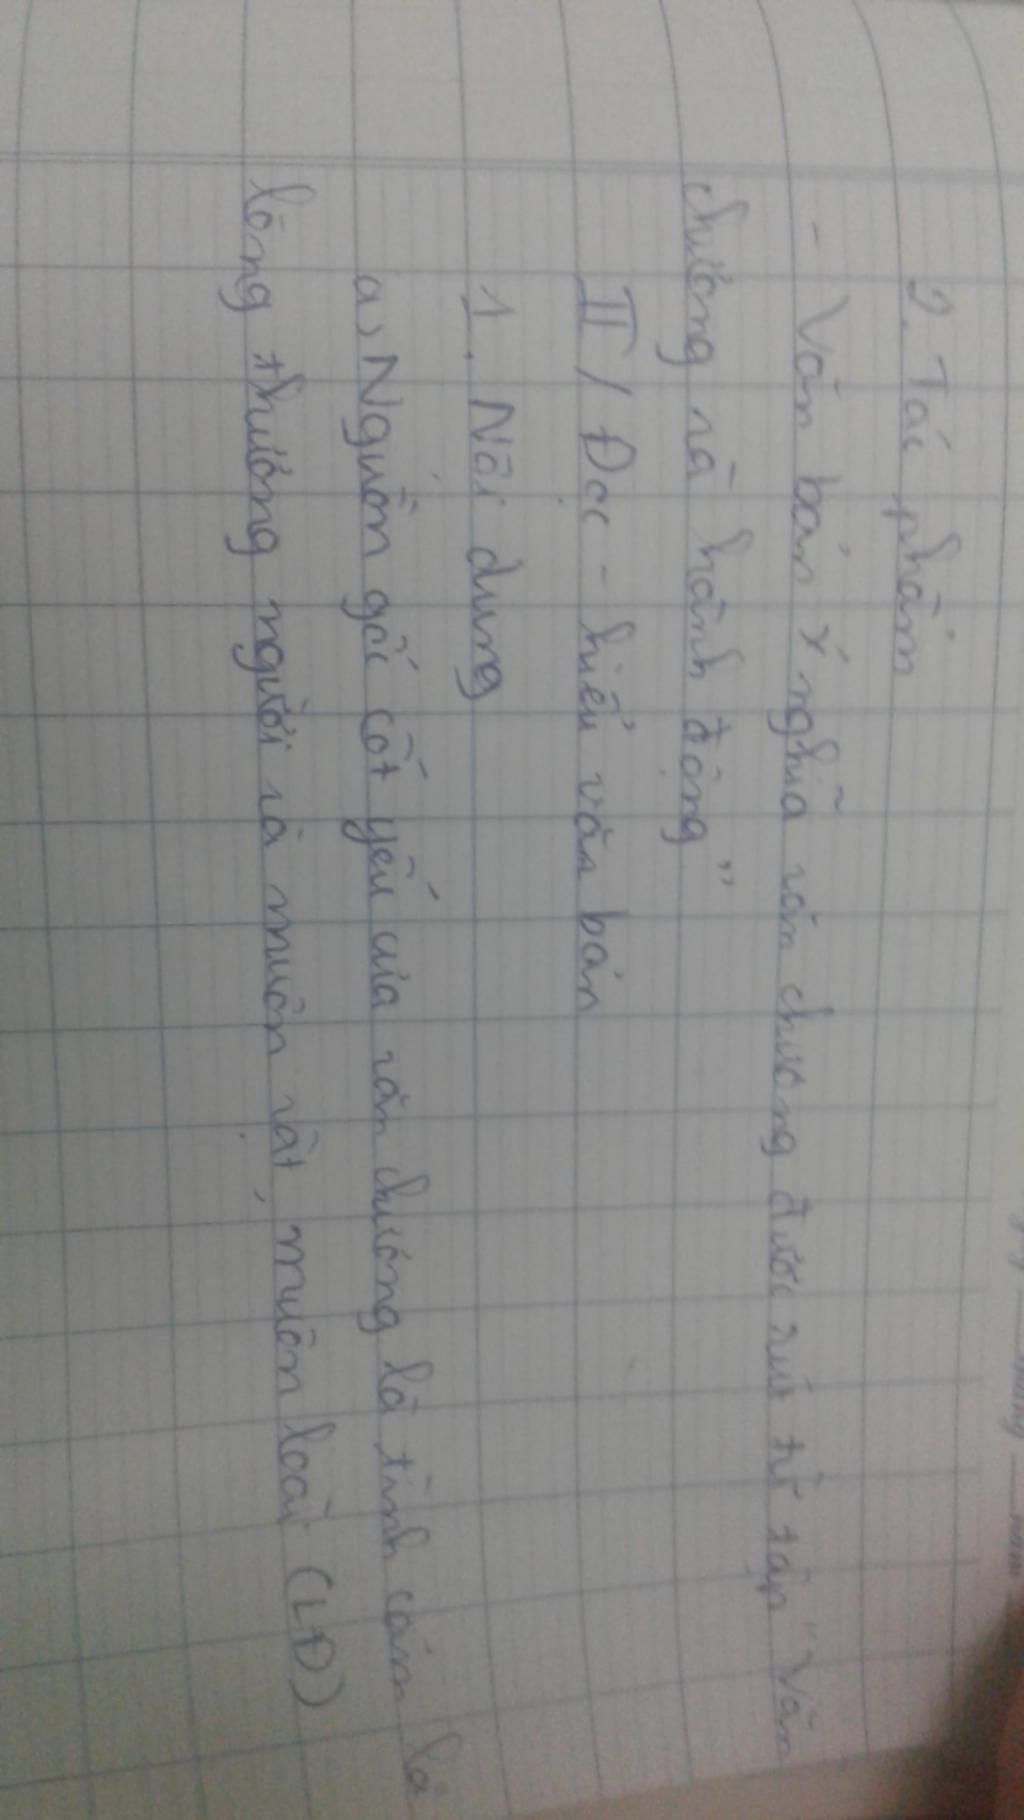 2. Tác phẩm
- Văn bản ý nghĩa văn chương được rút từ tập "Văn
chương và hành động"
II / Đọc - hiểu văn bản
1. Nội dung
a, Nguồn gốc cốt yếu của văn chương là tình cảm là
lòng thương người và muôn vật, muôn loài (LĐ)